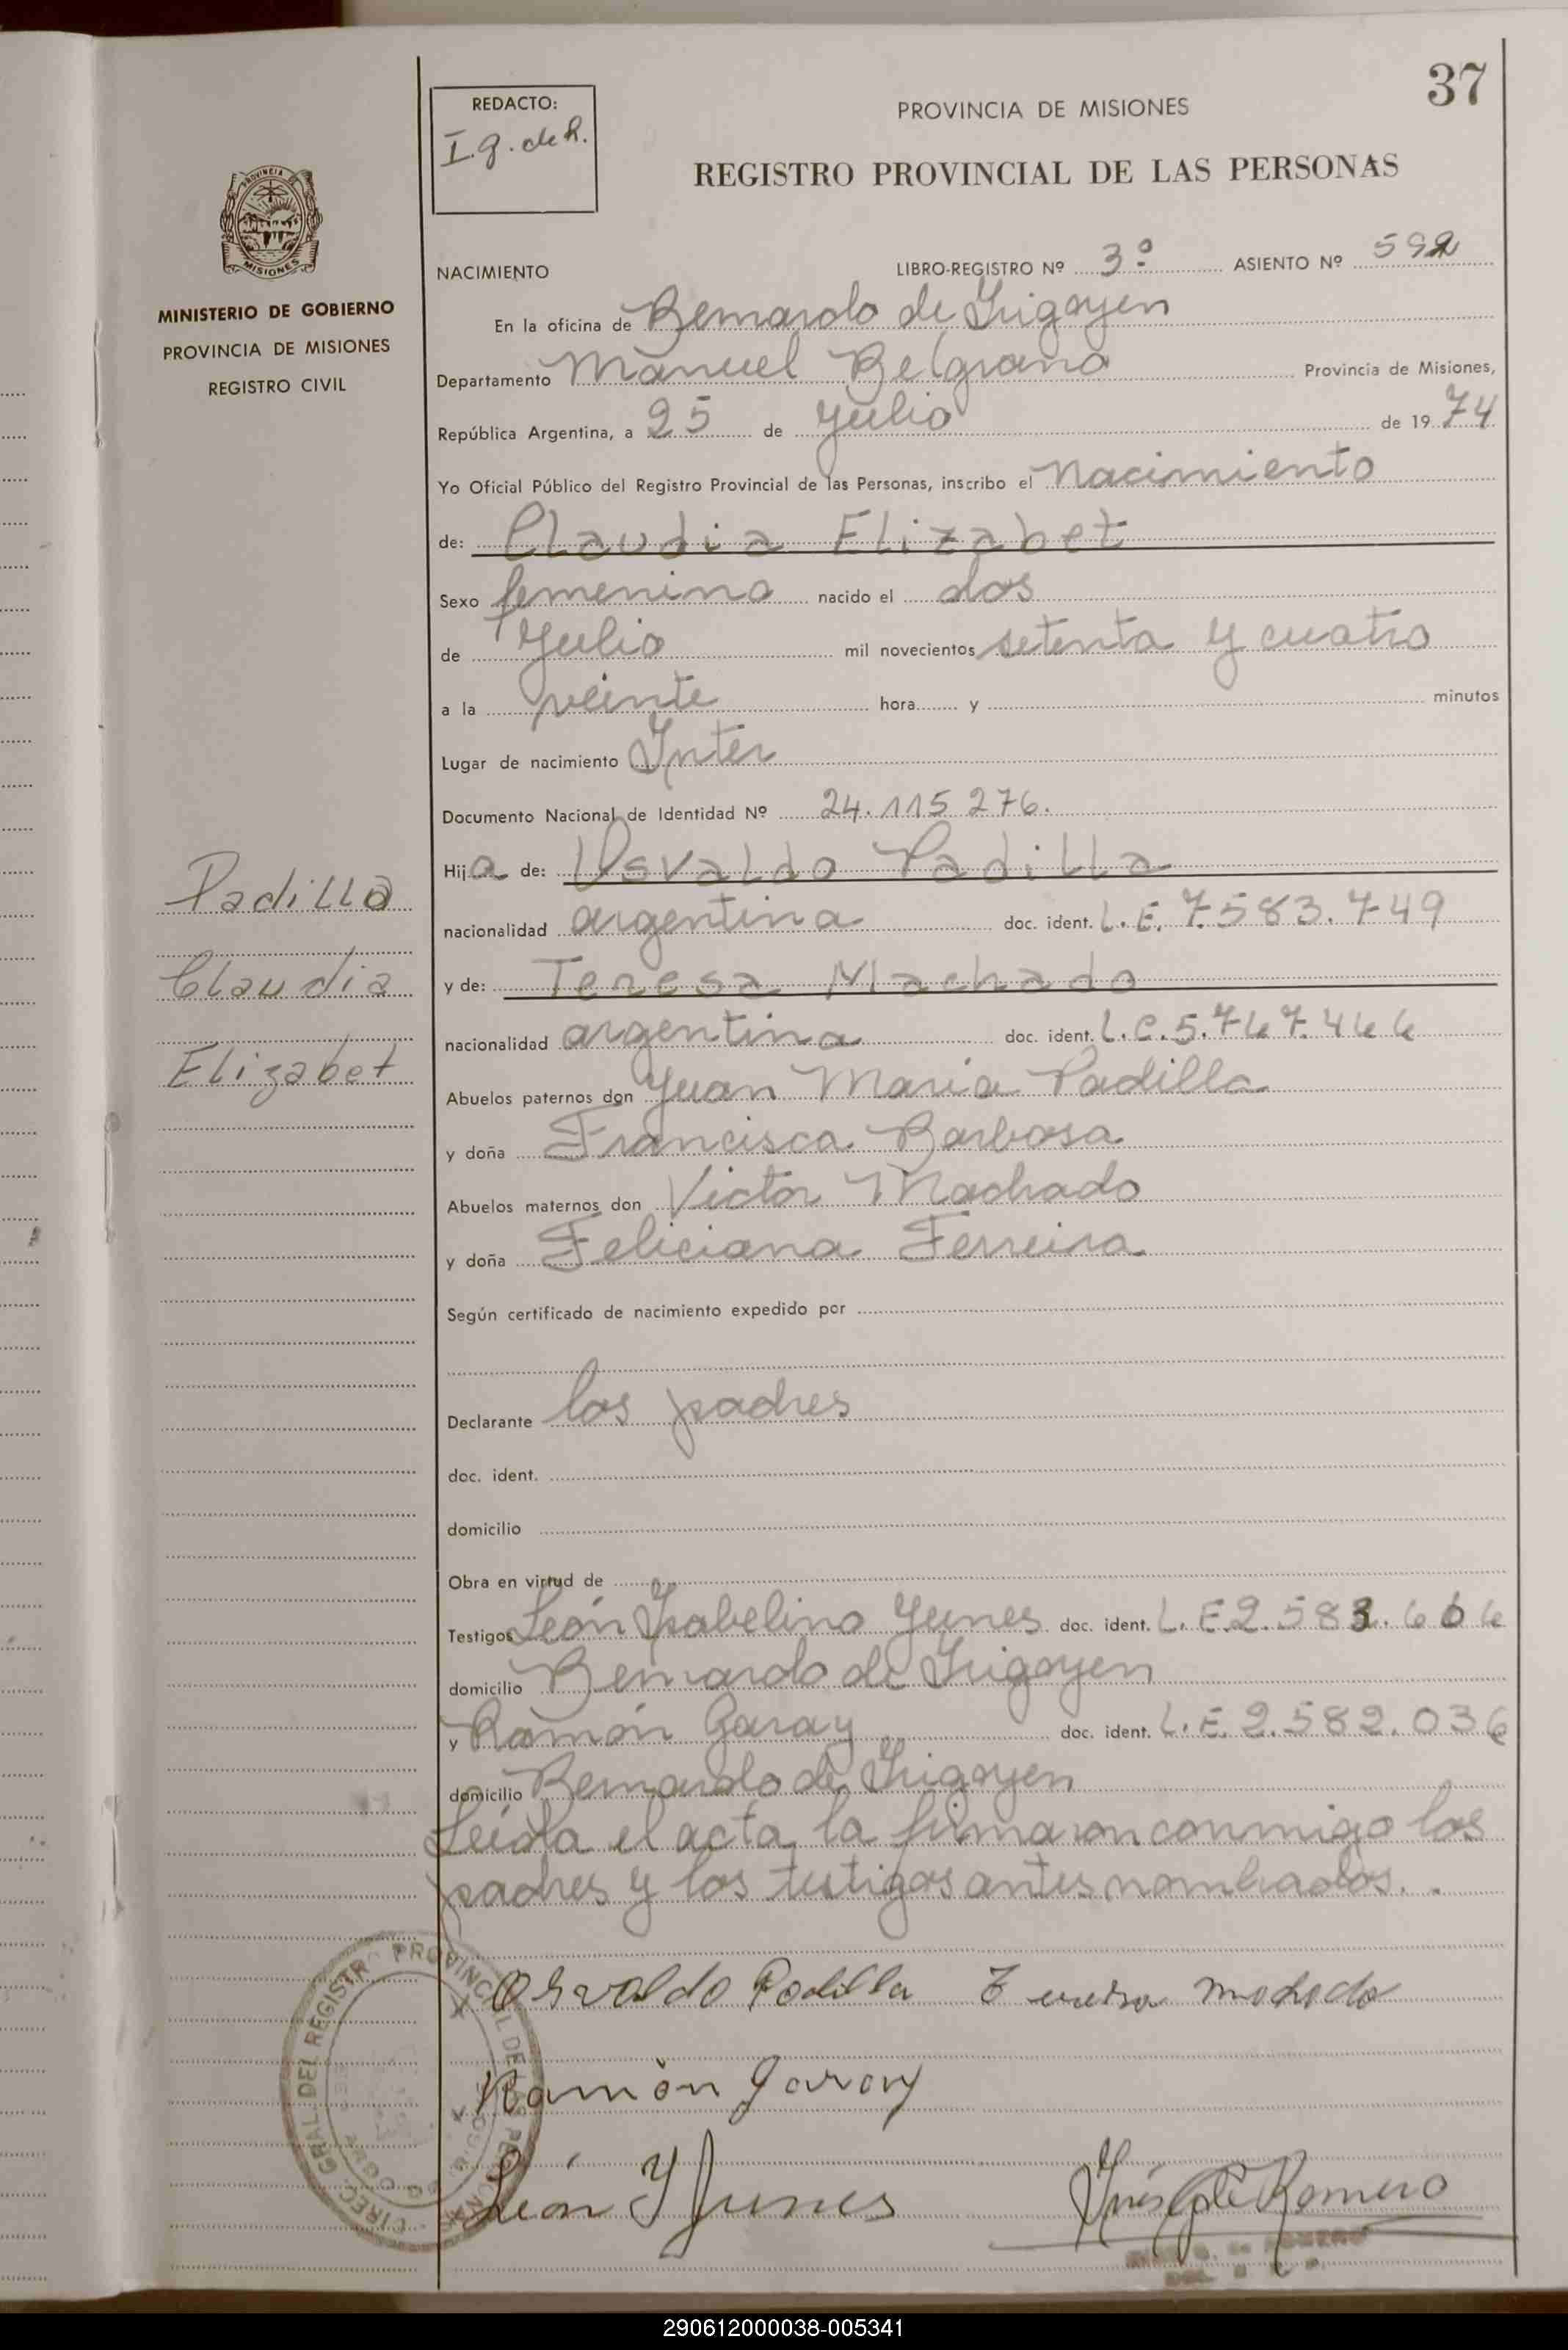 37
REDACTO:
I. g. de R.
PROVINCIA DE MISIONES
REGISTRO PROVINCIAL DE LAS PERSONAS
PROVINCIA DE
MISIONES
MINISTERIO DE GOBIERNO
PROVINCIA DE MISIONES
REGISTRO CIVIL
NACIMIENTO LIBRO-REGISTRO Nº 3º ASIENTO Nº
En la oficina de Bernardo de Irigoyen
Departamento Manuel Belgrano Provincia de Misiones,
República Argentina, a 25 de Julio de 1974
Yo Oficial Público del Registro Provincial de las Personas, inscribo el Nacimiento
de: Claudia Elizabet
Sexo femenino nacido el dos
de Julio mil novecientos setenta y cuatro
a la veinte hora y minutos
Lugar de nacimiento Inter
Documento Nacional de Identidad Nº 24.115.276.
Hija de: Osvaldo Padilla
nacionalidad argentina doc. ident. L.E. 7.583.749
y de: Teresa Machado
nacionalidad argentina doc. ident. L.C. 5.767.466
Abuelos paternos don Juan Maria Padilla
y doña Francisca Barbosa
Abuelos maternos don Victor Machado
y doña Feliciana Ferreira
Según certificado de nacimiento expedido por
Declarante los padres
doc. ident.
domicilio
Obra en virtud de
Testigos León Isabelino Yunes doc. ident. L.E. 2.583.606
domicilio Bernardo de Irigoyen
y Ramón Garay doc. ident. L.E. 2.582.036
domicilio Bernardo de Irigoyen
Leída el acta, la firmaron conmigo los
padres y los testigos antes nombrados.
Padilla
Claudia
Elizabet
Osvaldo Padilla Teresa Machado
Ramón Garay
León Y Junes
Inés G. de Romero
DIREC. GRAL. DEL REGISTRO PROVINCIAL DE LAS PERSONAS
290612000038-005341